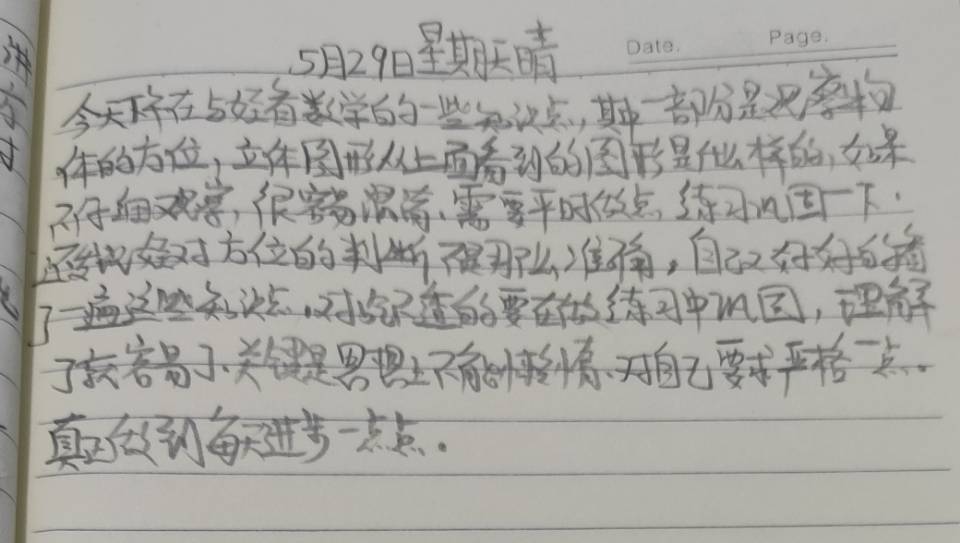 Date. Page.
5月29日星期天晴
今天 在 看数学的一些知识点,其中一部分是观察物
体的方位,立体图形从上面看到的图形是什么样的,如果
不仔细观察,很容易混淆、需要平时做点练习巩固一下.
对方位的判断 那么准确,自己又好好的看
了一遍这些知识点, 的要在做练习中巩固,理解
了就容易了、关键是思想上不能 、对自己要求严格一点.
真正做到每天进步一点点.